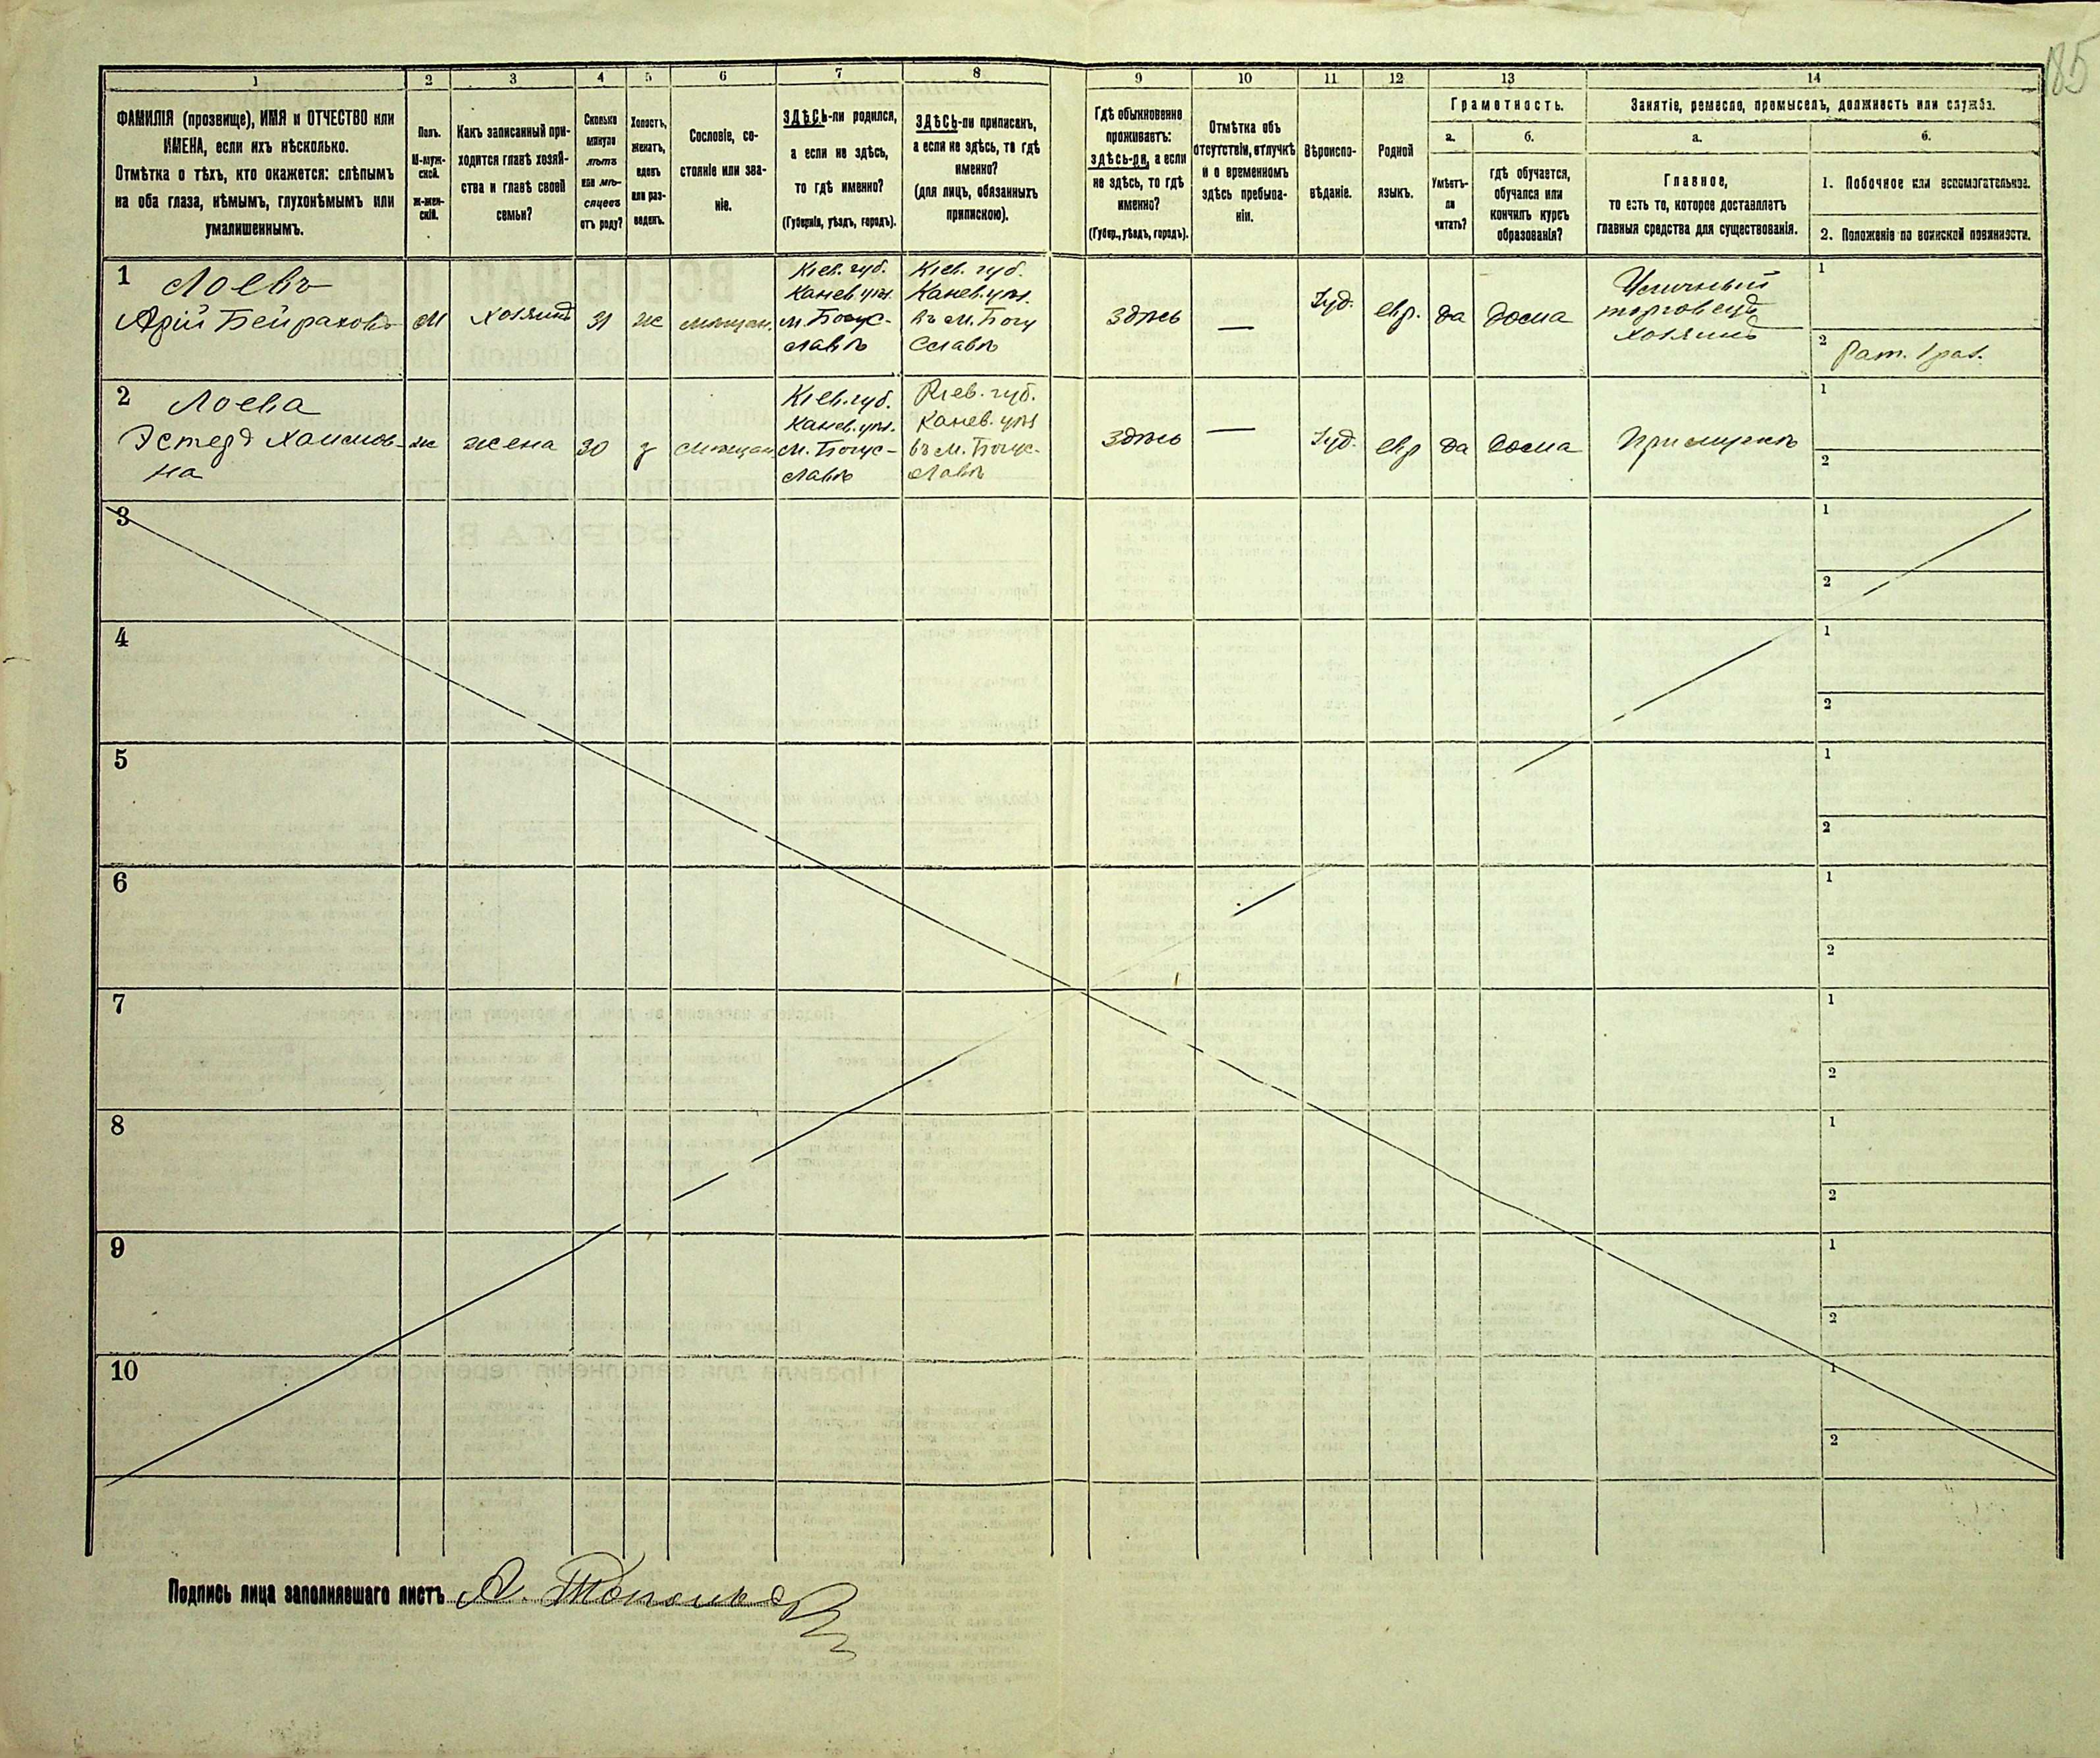 185
1 2 3 4 5 6 7 8 9 10 11 12 13 14
ФАМИЛІЯ (прозвище), ИМЯ и ОТЧЕСТВО или
ИМЕНА, если ихъ нѣсколько.
Отмѣтка о тѣхъ, кто окажется: слѣпымъ
на оба глаза, нѣмымъ, глухонѣмымъ или
умалишеннымъ.
Полъ.
М-муж-
ской.
ж-жен-
скій.
Какъ записанный при-
ходится главѣ хозяй-
ства и главѣ своей
семьи?
Сколько
минуло
лѣтъ
или мѣ-
сяцевъ
отъ роду?
Холостъ,
женатъ,
вдовъ
или раз-
веденъ.
Сословіе, со-
стояніе или зва-
ніе.
ЗДѢСЬ-ли родился,
а если не здѣсь,
то гдѣ именно?
(Губернія, уѣздъ, городъ).
ЗДѢСЬ-ли приписанъ,
а если не здѣсь, то гдѣ
именно?
(для лицъ, обязанныхъ
припискою).
Гдѣ обыкновенно
проживаетъ:
здѣсь-ли, а если
не здѣсь, то гдѣ
именно?
(Губер., уѣздъ, городъ).
Отмѣтка объ
отсутствіи, отлучкѣ
и о временномъ
здѣсь пребыва-
ніи.
Вѣроиспо-
вѣданіе.
Родной
языкъ.
Грамотность.
а.
Умѣетъ-
ли
читать?
б.
гдѣ обучается,
обучался или
кончилъ курсъ
образованія?
Занятіе, ремесло, промыселъ, должность или служба.
а.
Главное,
то есть то, которое доставляетъ
главныя средства для существованія.
б.
1. Побочное или вспомогательное.
2. Положеніе по воинской повинности.
1 Лоевъ
Арій Бейраховъ
М
хозяинъ
31
же
мѣщан.
Кіев. губ.
Канев. уѣз.
м. Богус-
лавѣ
Кіев. губ.
Канев. уѣз.
въ м. Богу
славѣ
здѣсь
—
Іуд.
евр.
да
дома
торговецъ
хозяинъ
1
2
2 Лоева
Эстеръ Хаимов-
на
ж
жена
30
з
мѣщан
Кіев. губ.
Канев. уѣз.
м. Богус-
лавѣ
Кіев. губ.
Канев. уѣз
въ м. Богус-
лавѣ
здѣсь
—
Іуд.
евр
да
дома
При мужѣ
1
2
3
1
2
4
1
2
5
1
2
6
1
2
7
1
2
8
1
2
9
1
2
10
1
2
Подпись лица заполнявшаго листъ